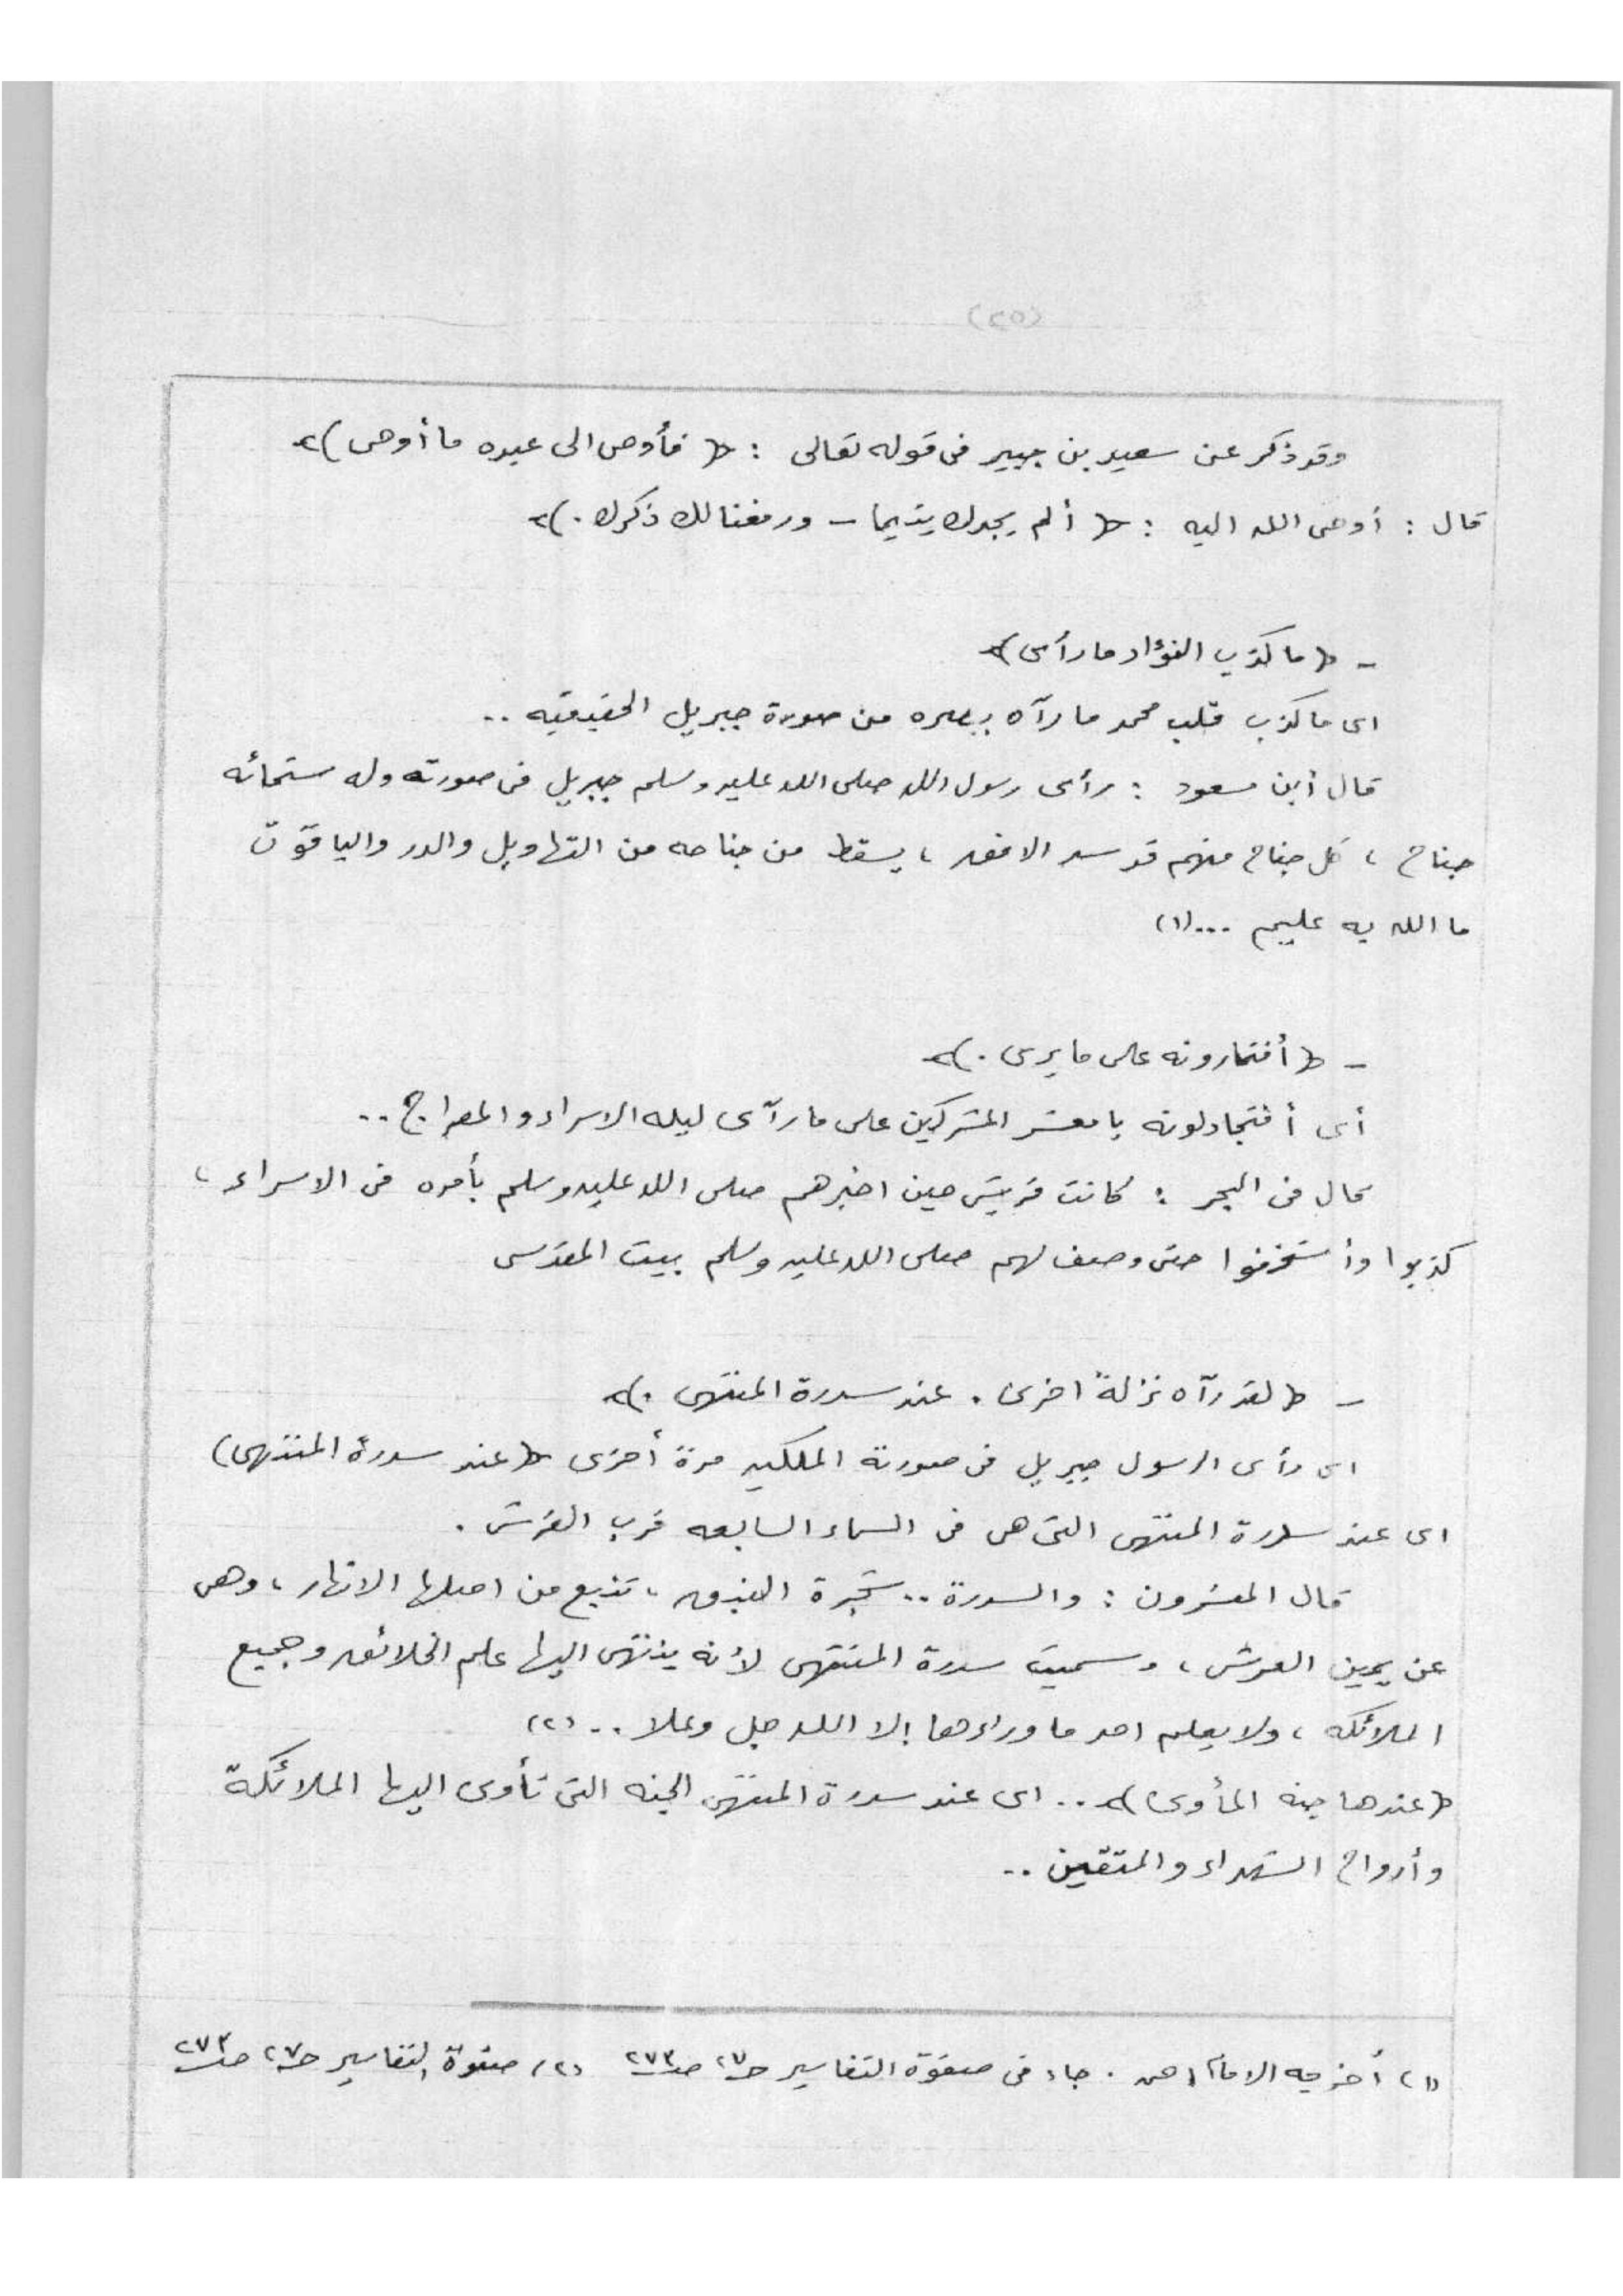 (٢٥)
وقد ذكر عن سعيد بن جبير فى قوله تعالى : ﴿ فأوحى الى عبده ما أوحى ﴾
قال : أوحى الله اليه : ﴿ ألم يجدك يتيما - ورفعنا لك ذكرك . ﴾
- ﴿ ما كذب الفؤاد ما رأى ﴾
اى ما كذب قلب محمد ما رآه ببصره من صورة جبريل الحقيقيه ..
قال أبن مسعود : رأى رسول الله صلى الله عليه وسلم جبريل فى صورته وله ستمائه
جناح ، كل جناح منهم قد سد الافق ، يسقط من جناحه من التهاويل والدر والياقوت
ما الله به عليم ... (١)
- ﴿ أفتمارونه على ما يرى . ﴾
أى أفتجادلونه يا معشر المشركين على ما رآى ليله الاسراء والمعراج ..
قال فى البحر : كانت قريش حين اخبرهم صلى الله عليه وسلم بأمره فى الاسراء ،
كذبوا وأستخفوا حتى وصف لهم صلى الله عليه وسلم بيت المقدس
- ﴿ لقد رآه نزلةً اخرى . عند سدرة المنتهى . ﴾
اى رأى الرسول جبريل فى صورته الملكيه مرة أخرى ﴿ عند سدرة المنتهى )
اى عند سدرة المنتهى التى هى فى السماء السابعه قرب العرش .
قال المفسرون : والسدرة .. شجرة النبق ، تنبع من اصلها الانهار ، وهى
عن يمين العرش ، وسميت سدرة المنتهى لأنه ينتهى اليها علم الخلائق وجميع
الملائكه ، ولا يعلم احد ما وراءها إلا الله جل وعلا .. (٢)
﴿ عندها جنه المأوى ﴾ .. اى عند سدرة المنتهى الجنه التى تأوى اليها الملائكة
وأرواح الشهداء والمتقين ..
(١) أخرجه الامام احمد . جاء فى صفوة التفاسير حـ ٢٧ صـ ٢٧٣ (٢) صفوة التفاسير حـ ٢٧ صـ ٢٧٣